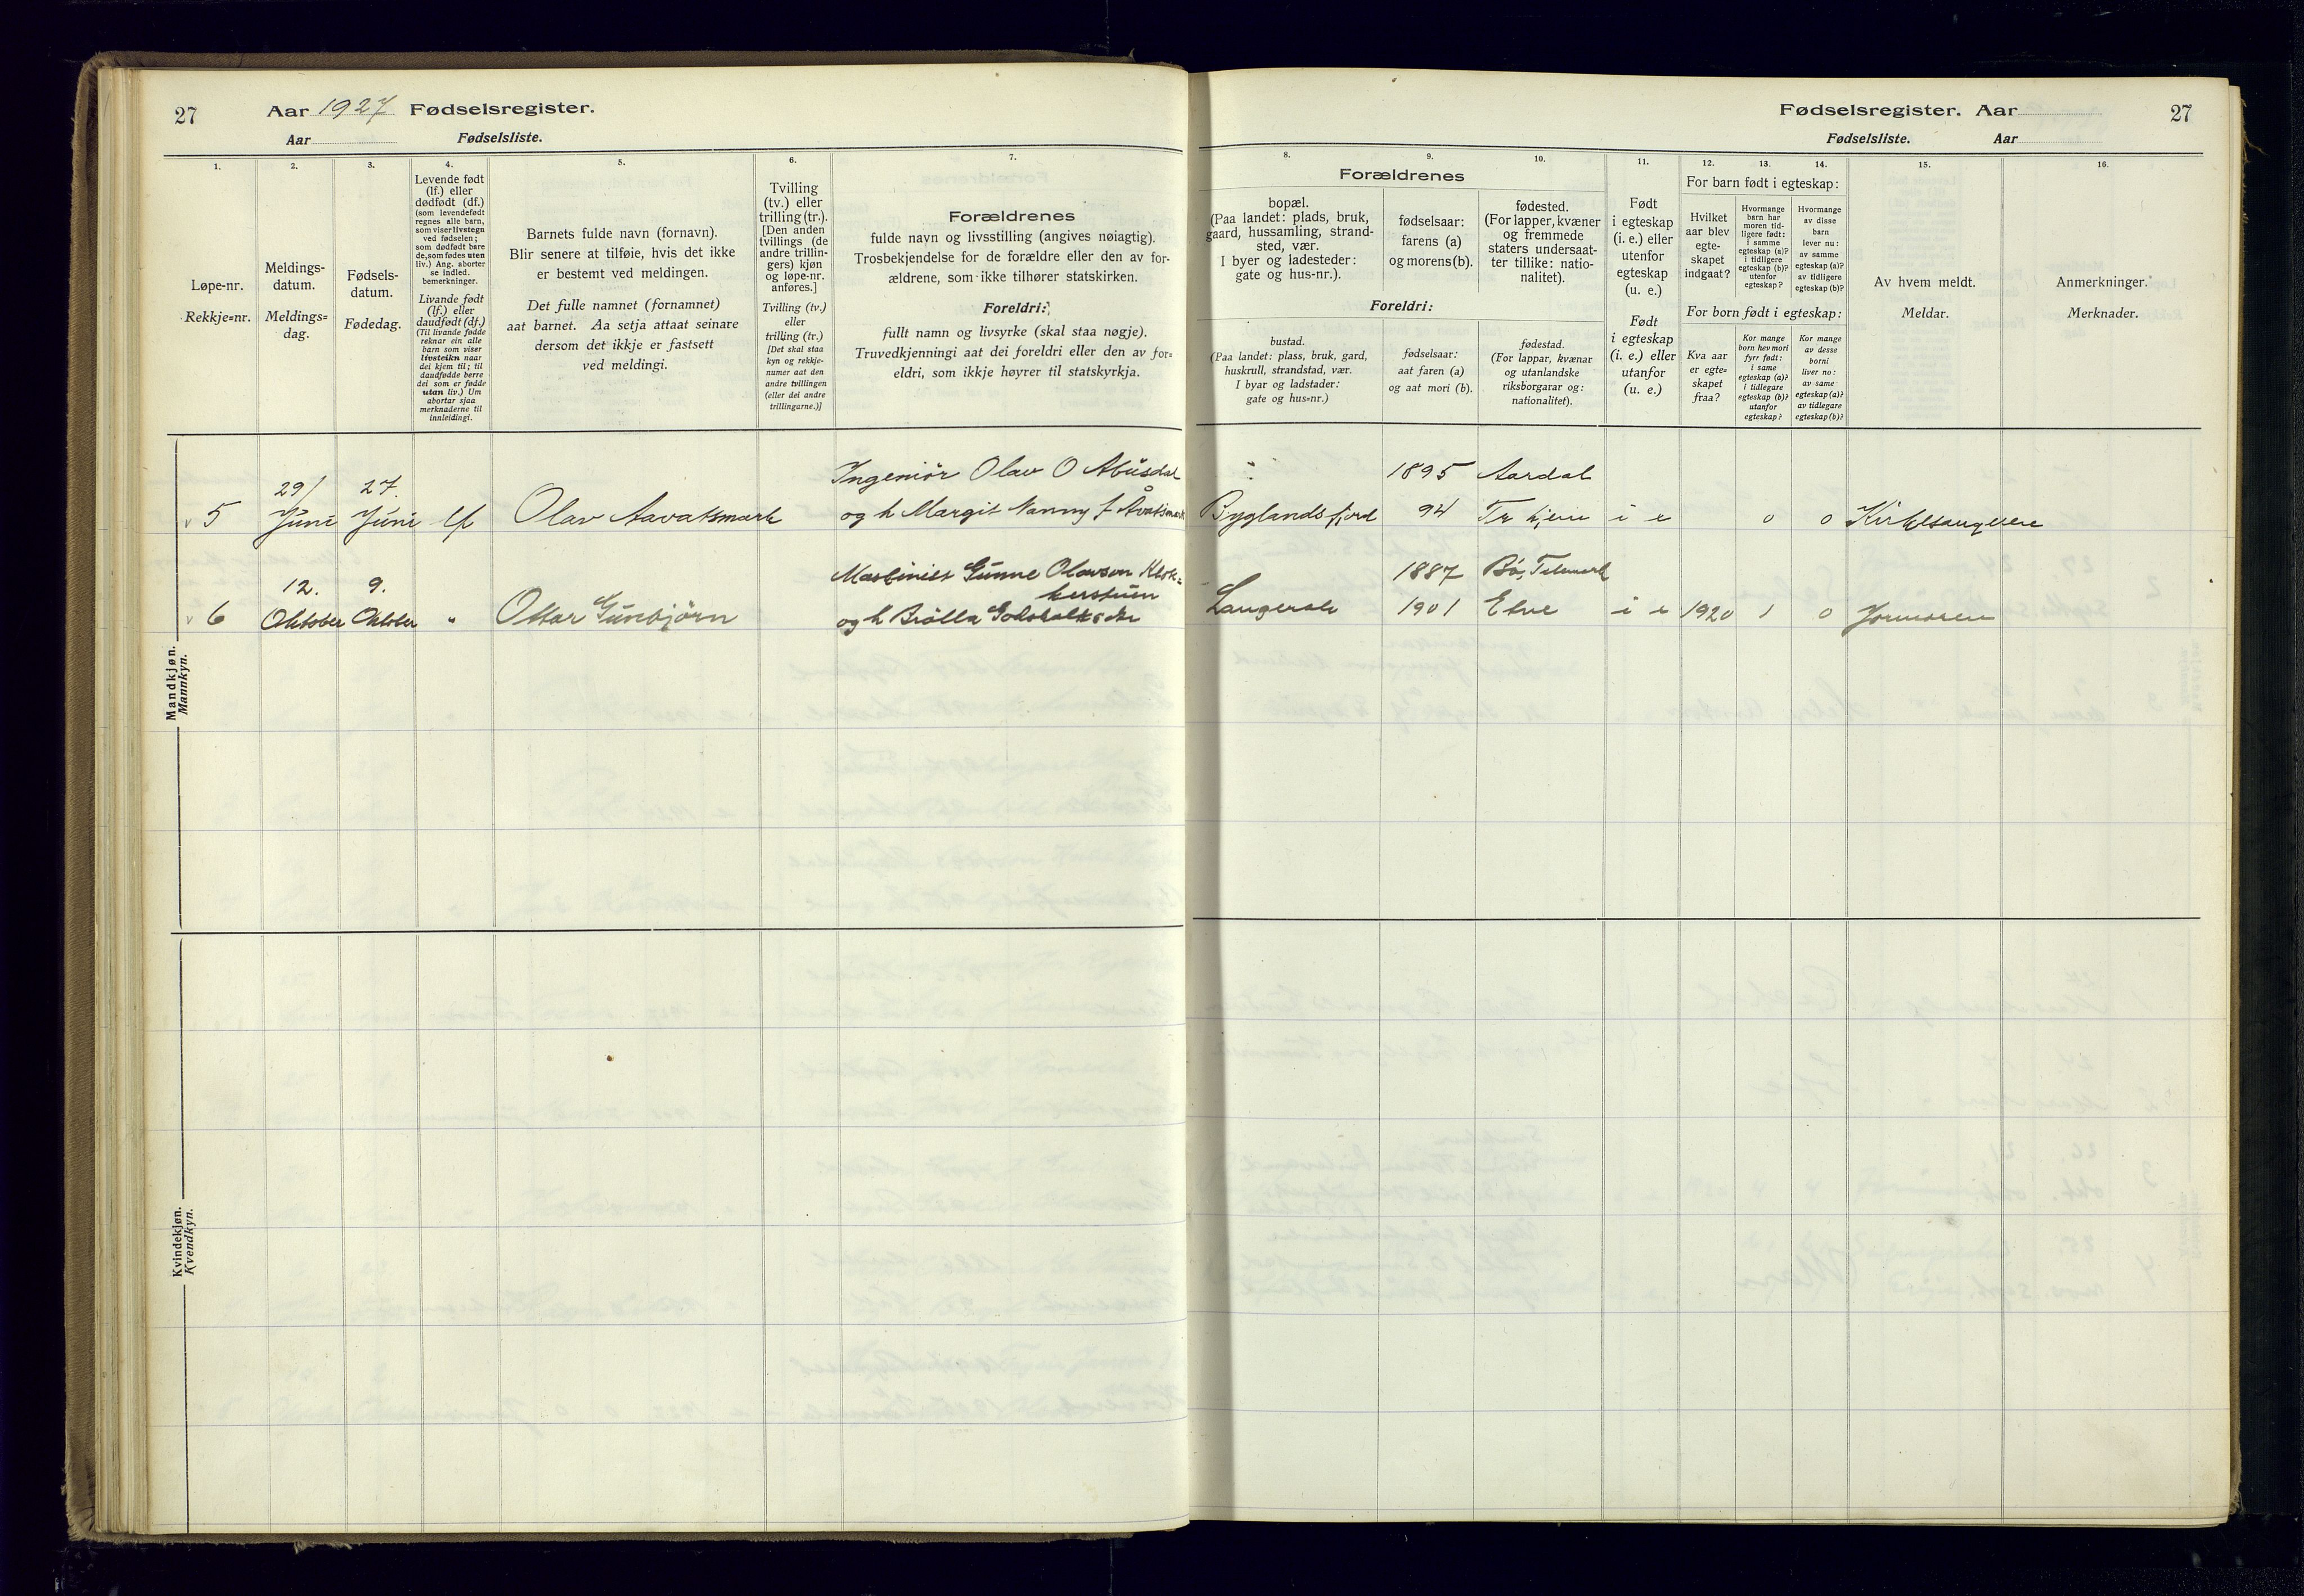 27 Aar 1927 Fødselsregister.
Aar Fødselsliste.
1.
2.
3.
4.
5.
6.
7.
Løpe-nr.
Rekkje=nr.
Meldings-
datum.
Meldings=
dag.
Fødsels-
datum.
Fødedag.
Levende født
(lf.) eller
dødfødt (df.)
(som levendefødt
regnes alle barn,
som viser livstegn
ved fødselen;
som dødfødt bare
de, som fødes uten
liv.) Ang. aborter
se indled.
bemerkninger.
Livande født
(lf.) eller
daudfødt (df.)
(Til livande fødde
reknar ein alle
barn som viser
livsteikn naar
dei kjem til; til
daudfødde berre
dei som er fødde
utan liv.) Um
abortar sjaa
merknaderne til
innleidingi.
Barnets fulde navn (fornavn).
Blir senere at tilføie, hvis det ikke
er bestemt ved meldingen.
Det fulle namnet (fornamnet)
aat barnet. Aa setja attaat seinare
dersom det ikkje er fastsett
ved meldingi.
Tvilling
(tv.) eller
trilling (tr.).
[Den anden
tvillings (de
andre trillin-
gers) kjøn
og løpe-nr.
anføres.]
Tvilling (tv.)
eller
trilling (tr.)
[Det skal staa
kyn og rekkje-
numer aat den
andre tvillingen
(eller dei andre
trillingarne.)]
Forældrenes
fulde navn og livsstilling (angives nøiagtig).
Trosbekjendelse for de forældre eller den av for-
ældrene, som ikke tilhører statskirken.
Foreldri:
fullt namn og livsyrke (skal staa nøgje).
Truvedkjenningi aat dei foreldri eller den av for=
eldri, som ikkje høyrer til statskyrkja.
Mandkjøn.
Mannkyn.
5
29/
Juni
27.
Juni
lf
Olav Aavatsmark
Ingeniør Olav O Abusdal
og h Margit Nanny f Åvatsmark
6
12.
Oktober
9.
Oktober
"
Ottar Gunbjörn
Maskinist Gunne Olavson Klok=
kerstuen
og h
Kvindekjøn.
Kvendkyn.
Fødselsregister. Aar 27
Fødselsliste. Aar
8.
9.
10.
11.
12.
13.
14.
15.
16.
Forældrenes
bopæl.
(Paa landet: plads, bruk,
gaard, hussamling, strand-
sted, vær.
I byer og ladesteder:
gate og hus-nr.).
fødselsaar:
farens (a)
og morens (b).
fødested.
(For lapper, kvæner
og fremmede
staters undersaat-
ter tillike: natio-
nalitet).
Foreldri:
bustad.
(Paa landet: plass, bruk, gard,
huskrull, strandstad, vær.
I byar og ladstader:
gate og hus=nr.)
fødselsaar:
aat faren (a)
og aat mori (b).
fødestad.
(For lappar, kvænar
og utanlandske
riksborgarar og:
nationalitet).
Født
i egteskap
(i. e.) eller
utenfor
egteskap
(u. e.)
Født
i egteskap
(i. e.) eller
utanfor
(u. e.)
For barn født i egteskap:
Hvilket
aar blev
egte-
skapet
indgaat?
Hvormange
barn har
moren tid-
ligere født:
i samme
egteskap (a)?
i tidligere
egteskap (b)?
utenfor
egteskap?
Hvormange
av disse
barn
lever nu:
av samme
egteskap (a)?
av tidligere
egteskap (b)?
For born født i egteskap:
Kva aar
er egte=
skapet
fraa?
Kor mange
born hev mori
fyrr født:
i same
egteskap (a)?
i tidlegare
egteskap (b)?
utanfor
egteskap?
Kor mange
av desse
borni
liver no:
av same
egteskap (a)?
av tidlegare
egteskap (b)?
Av hvem meldt.
Meldar.
Anmerkninger.
Merknader.
Byglandsfjord
1895 Aardal
94
i e
0
0
1887 Bö, Telemark
1901 Etne
i e
1920
1
0
Jormoren